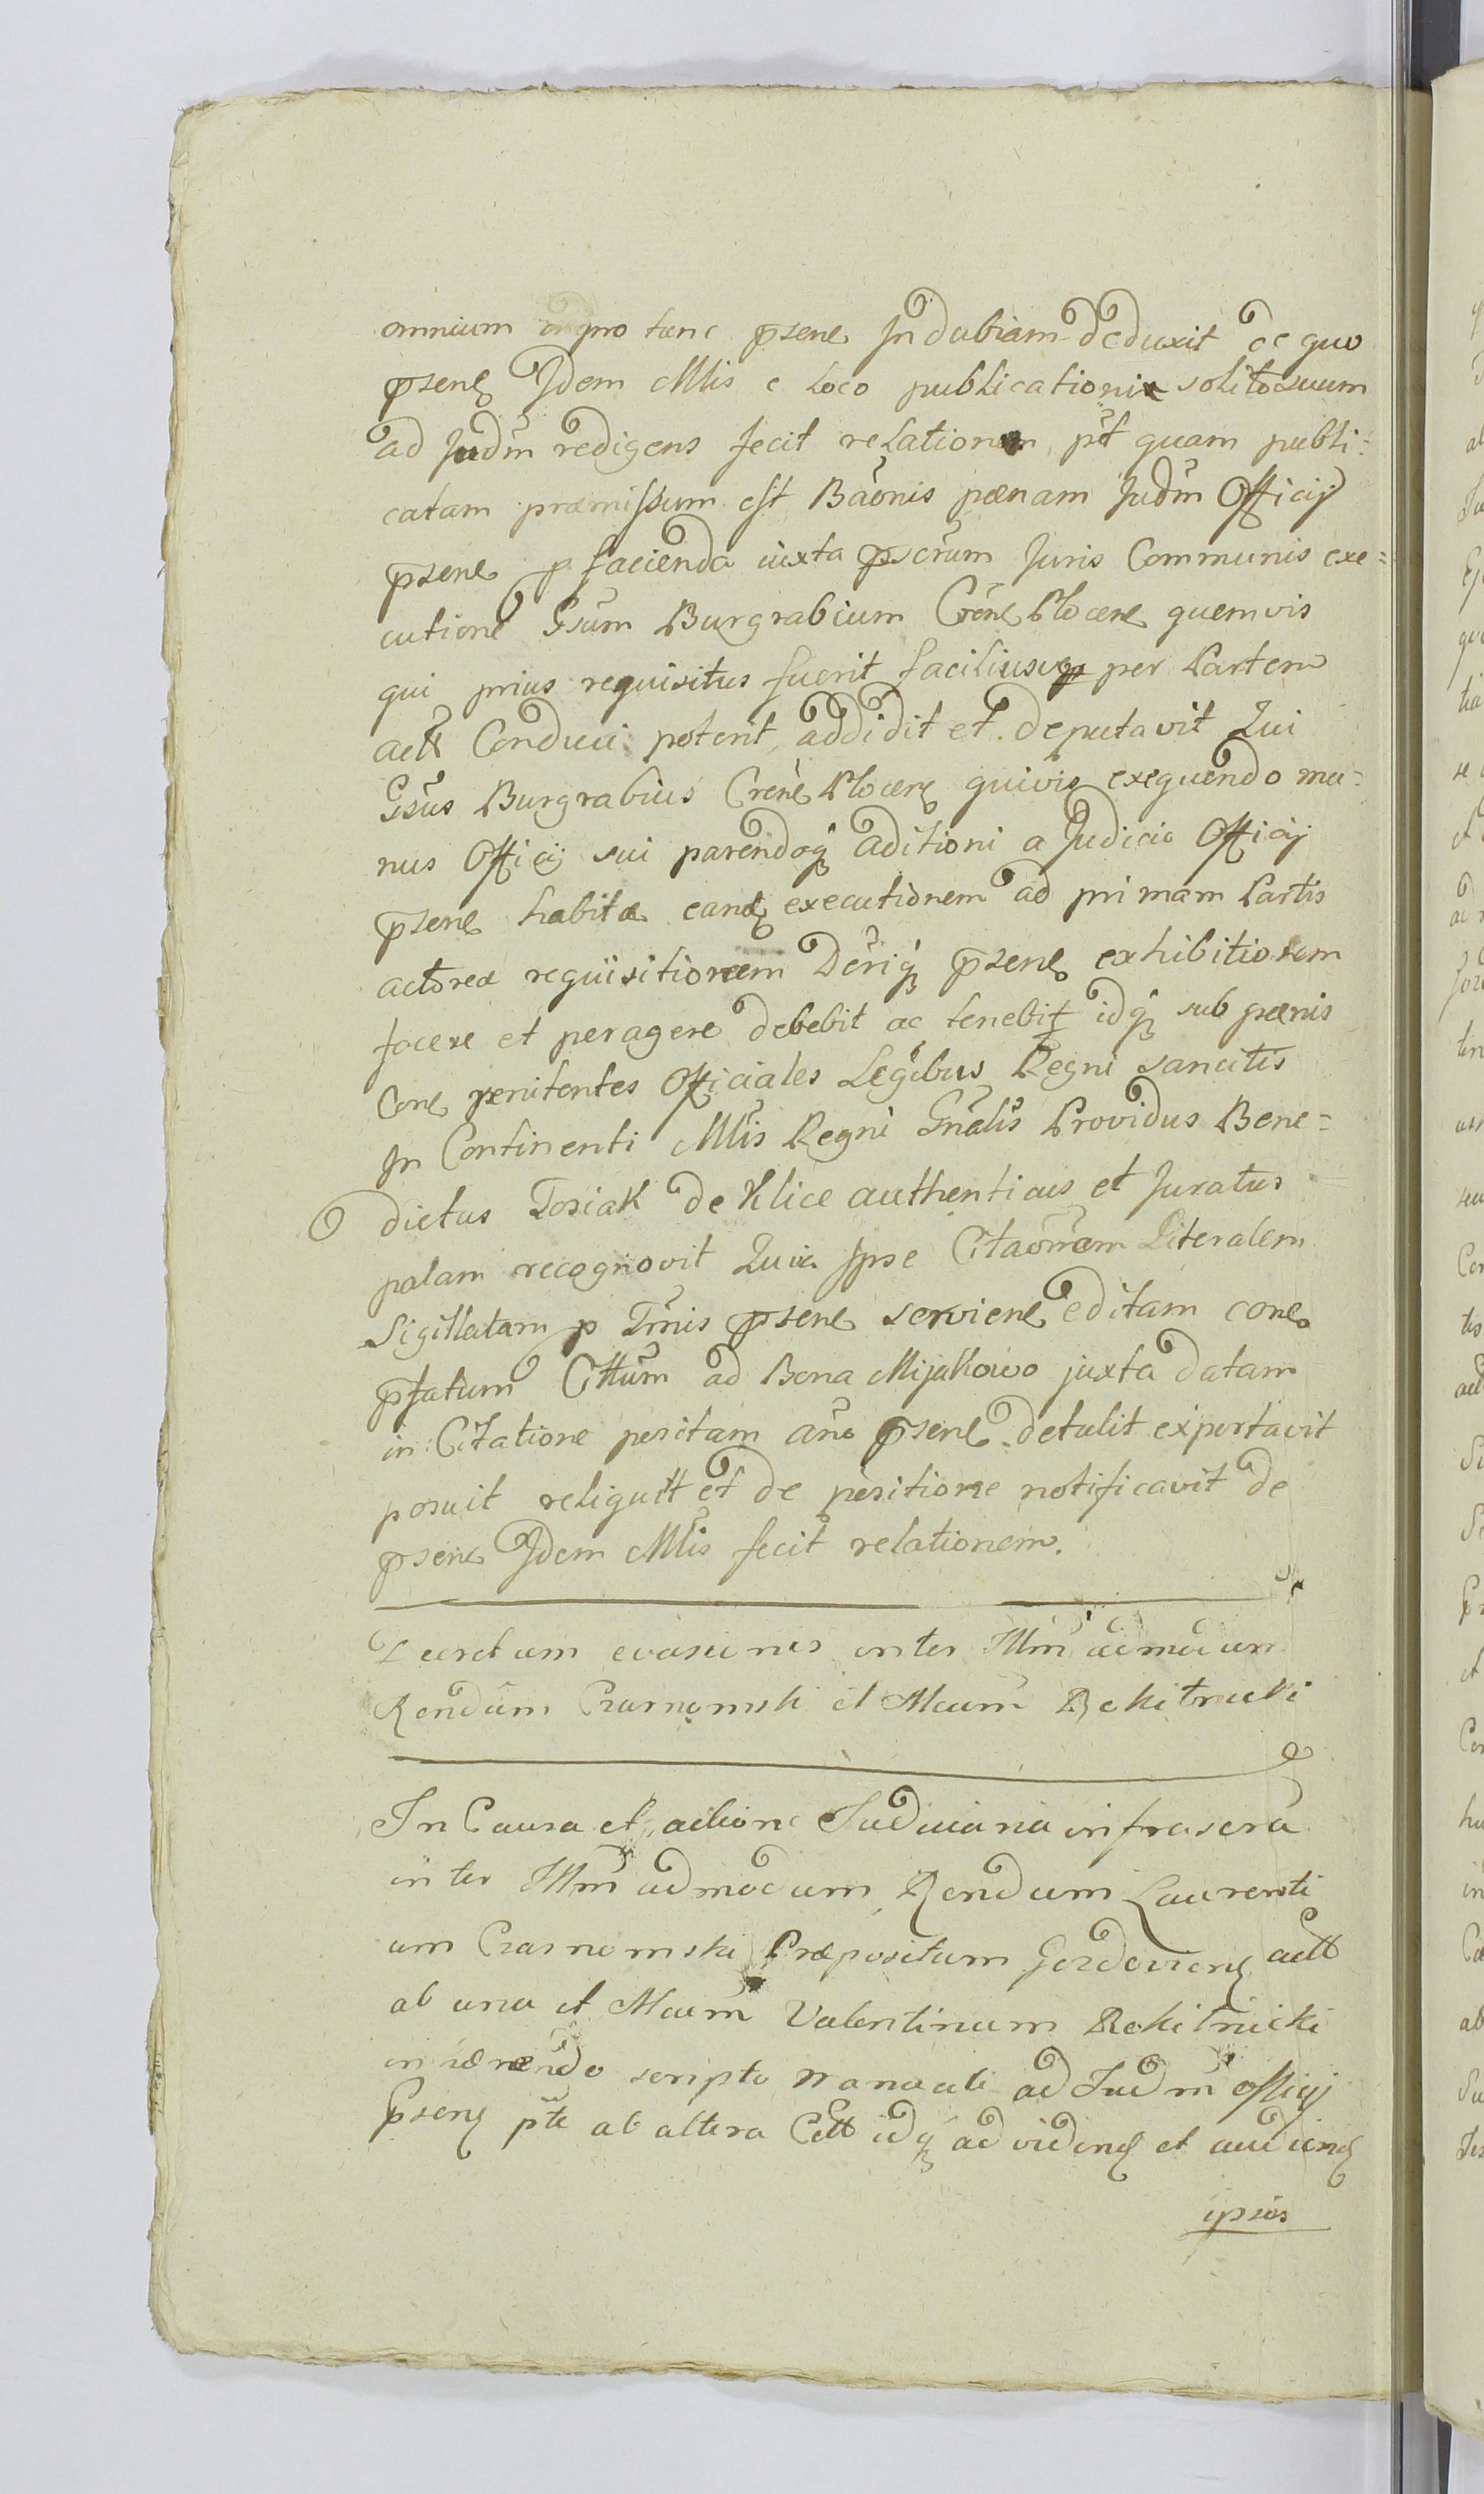 omnium tunc psene Indubiam deduxit de quo
psene Idem Mlis e loco publicationis solito suum
ad Judm redigens fecit relationem, pt quam publi:
catam præmissum est Baonis pœnam Judm Officij
psene p facienda iuxta pscrum Juris Communis exe=
cutione Gsum Burgrabium Crene Plocene quemvis
qui prius requisitus fuerit faciliusq per Partem
actt Conduci poterit, addidit et deputavit Qui
Gsus Burgrabius Crene Plocene quivis exequendo mu=
nus Officij sui parendoq aditioni a Judicio Officij
psene habitæ eand executionem ad primam Partis
actoreæ requisitionem Dcriq psene exhibitionem
facere et peragere debebit ac tenebit idq sub pœnis
Cone renitentes Officiales Legibus Regni sancitis
In Continenti Mlis Regni Gnalis Providus Bene=
dictus Tosiak de Klice authenticus et Juratus
palam recognovit Quia Ipse Citaonem Literalem
Sigillatam p Tmis psene serviene editam cone
pfatum Cttum ad Bona Mijakowo juxta datam
in Citatione positam ano psene detulit exportavit
posuit reliquit et de positione notificavit de
psene Idem Mlis fecit relationem.
Decretum evasionis inter Illm admodum
Rendum Czarnomski et Mcum Rokitnicki
In Causa et actione Judiciaria infrascra
inter Illm admodum Rendum Laurenti
um Czarnomski Præpositum Gozdoviene actt
ab una et Mcum Valentinum Rokitnicki
scripto manuali ad Judm officij
psene pte ab altera Ctt idq ad vidend et audiend
ipsos